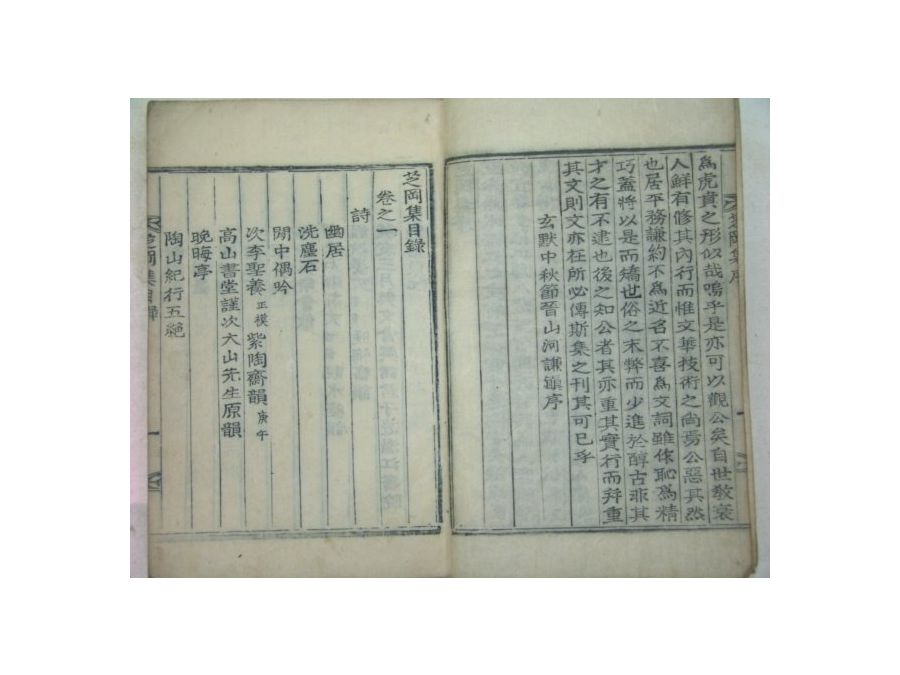 爲虎賁之形似哉嗚乎是亦可以觀公矣自世敎衰
人鮮有修其內行而惟文華技術之尙焉公惡其然
也居平務謙約不爲近名不喜爲文詞雖傢恥爲精
巧蓋將以是而矯世俗之末弊而少進於醇古非其
才之有不逮也後之知公者其亦重其實行而幷重
其文則文亦在所必傳斯集之刊其可已乎
玄默中秋節晉山河謙鎭序
芝岡集序
芝岡集目錄
卷之一
詩
幽居
洗塵石
閒中偶吟
次李聖養正模紫陶齋韻庚午
高山書堂謹次大山先生原韻
晚晦亭
陶山紀行五絶
芝岡集目錄
一